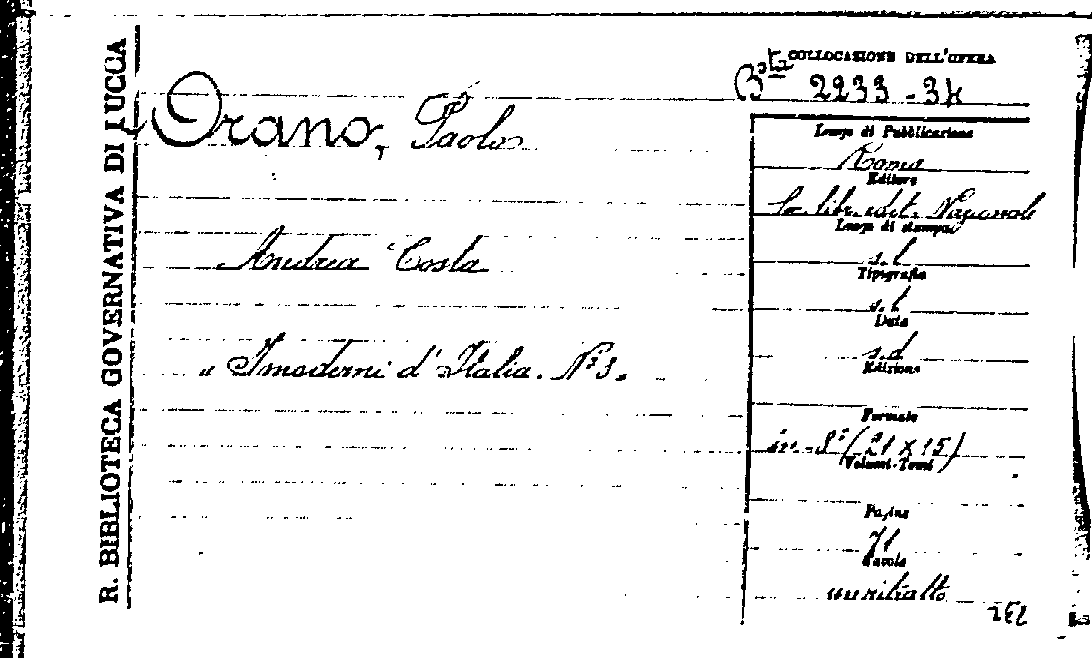 R. BIBLIOTECA GOVERNATIVA DI LUCCA
COLLOCAZIONE DELL'OPERA
Bta 2233-34
Orano, Paolo
Andrea Costa
"I moderni d'Italia. N° 3.
Luogo di Pubblicazione
Roma
Editore
La libr. edit. Nazionale
Luogo di stampa
s.l
Tipografia
s.l
Data
s.d
Edizione
Formato
in-8° (21 x 15)
Volumi-Tomi
Pagine
71
Tavole
un ritratto